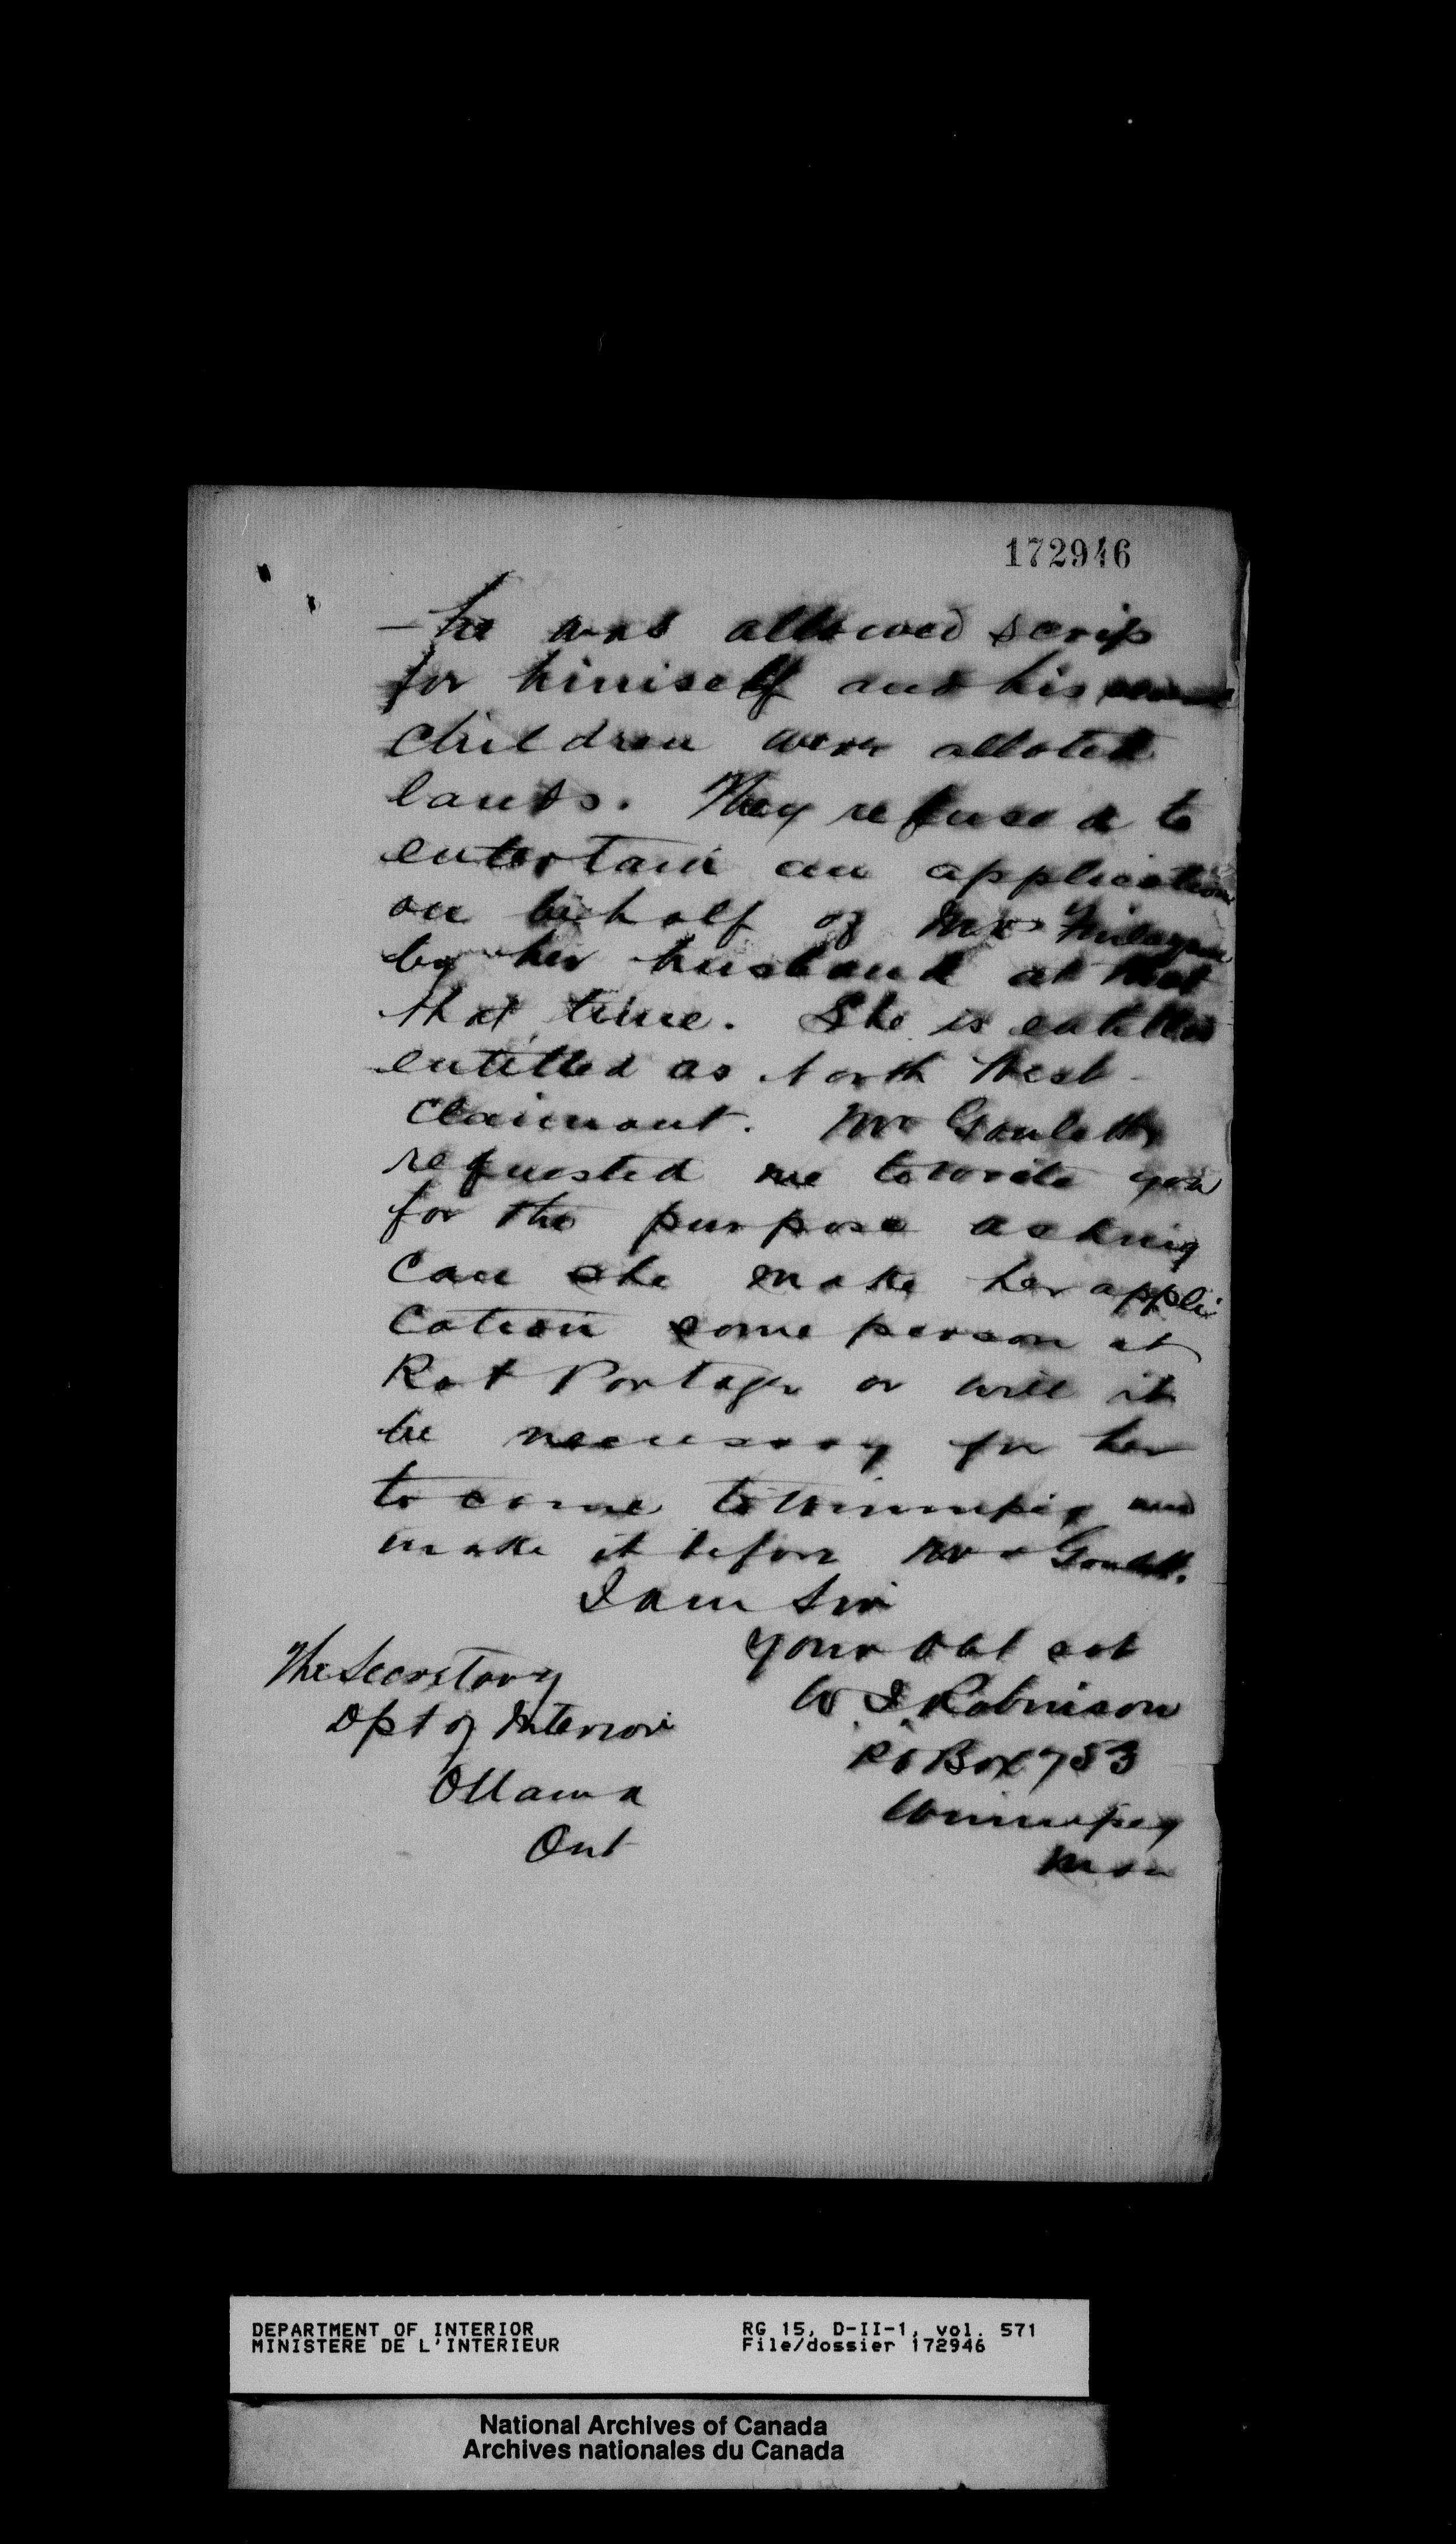 172946
- he was allowed scrip
for himself and his
children were alloted
lands. They refused to
entertain an application
on behalf of Mrs Finlayson
by her husband at that
that time. She is entitled
entitled as North West
Claimant. Mr Goulette
requested me to write you
for the purpose asking
Can she make her appli
cation some person at
Rat Portage or will it
be necessary for her
to come to Winnipeg and
make it before Mr Goulett.
I am Sir
your obt svt
W I Robinson
PO Box 753
Winnipeg
Man
The Secretary
Dpt of Interior
Ottawa
Ont
DEPARTMENT OF INTERIOR
MINISTERE DE L'INTERIEUR
RG 15, D-II-1, vol. 571
File/dossier 172946
National Archives of Canada
Archives nationales du Canada